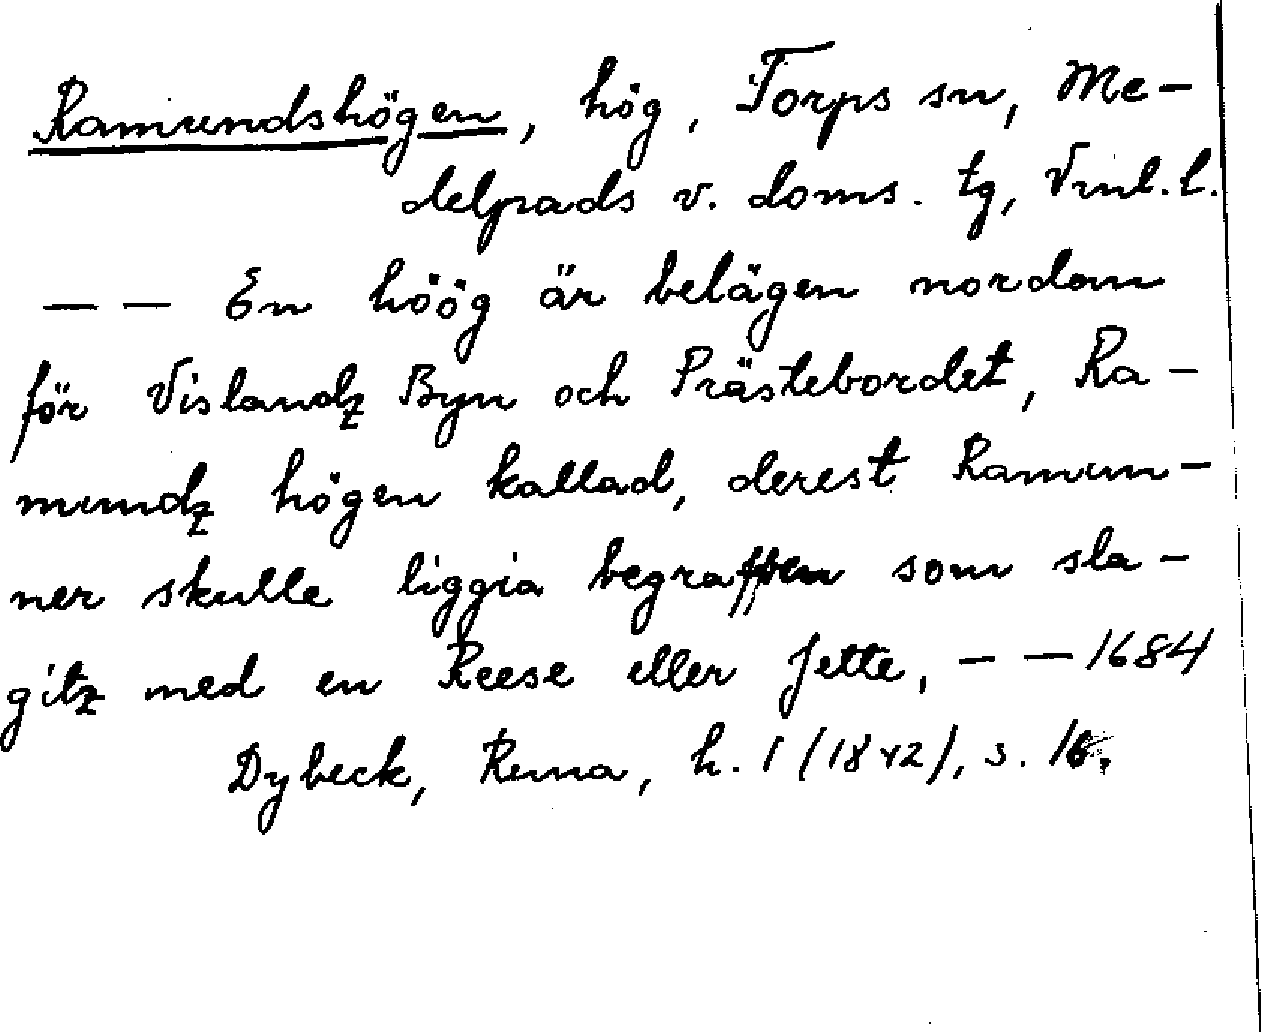 Ramundshögen, hög, Torps sn, Me-
delpads v. doms. tg, Vnl. l.
— — En höög är belägen nordom
för Vislandz Byn och Prästebordet, Ra-
mundz högen kallad, derest Ramun-
ner skulle liggia begraffven som sla-
gitz med en Reese eller Jette, — — 1684
Dybeck, Runa, h. 1 (1842), s. 16.